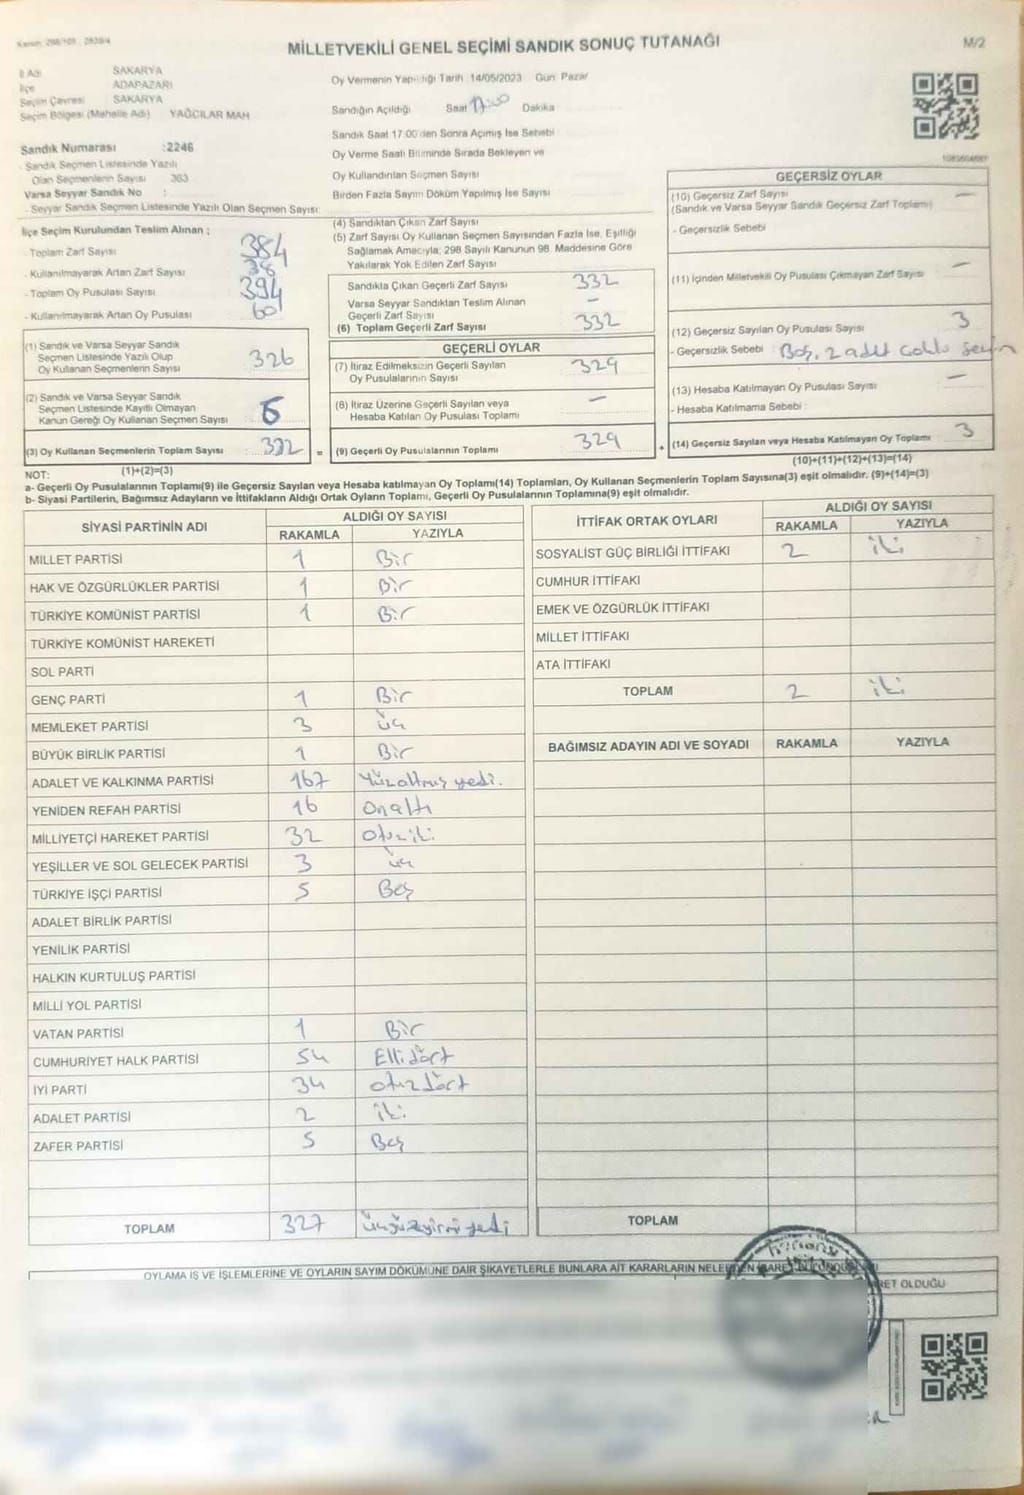 Kanun: 298/105 : 2839/4
MİLLETVEKİLİ GENEL SEÇİMİ SANDIK SONUÇ TUTANAĞI
M/2
İl Adı SAKARYA
İlçe ADAPAZARI
Seçim Çevresi SAKARYA
Seçim Bölgesi (Mahalle Adı) YAĞCILAR MAH
Sandık Numarası :2246
- Sandık Seçmen Listesinde Yazılı
Olan Seçmenlerin Sayısı 363
Varsa Seyyar Sandık No :
- Seyyar Sandık Seçmen Listesinde Yazılı Olan Seçmen Sayısı:
Oy Vermenin Yapıldığı Tarih :14/05/2023 Gün: Pazar
Sandığın Açıldığı Saat 17:00 Dakika
Sandık Saat 17:00'den Sonra Açımış İse Sebebi
Oy Verme Saati Bitiminde Sırada Bekleyen ve
Oy Kullandırılan Seçmen Sayısı
Birden Fazla Sayım Döküm Yapılmış İse Sayısı
İlçe Seçim Kurulundan Teslim Alınan ;
- Toplam Zarf Sayısı 384
- Kullanılmayarak Artan Zarf Sayısı 38
- Toplam Oy Pusulası Sayısı 394
- Kullanılmayarak Artan Oy Pusulası 60
(1) Sandık ve Varsa Seyyar Sandık
Seçmen Listesinde Yazılı Olup
Oy Kullanan Seçmenlerin Sayısı 326
(2) Sandık ve Varsa Seyyar Sandık
Seçmen Listesinde Kayıtlı Olmayan
Kanun Gereği Oy Kullanan Seçmen Sayısı 6
(3) Oy Kullanan Seçmenlerin Toplam Sayısı 332 =
(1)+(2)=(3)
(4) Sandıktan Çıkan Zarf Sayısı
(5) Zarf Sayısı Oy Kullanan Seçmen Sayısından Fazla İse, Eşitliği
Sağlamak Amacıyla; 298 Sayılı Kanunun 98. Maddesine Göre
Yakılarak Yok Edilen Zarf Sayısı
Sandıkla Çıkan Geçerli Zarf Sayısı 332
Varsa Seyyar Sandıktan Teslim Alınan
Geçerli Zarf Sayısı –
(6) Toplam Geçerli Zarf Sayısı 332
GEÇERLİ OYLAR
(7) İtiraz Edilmeksizin Geçerli Sayılan
Oy Pusulalarının Sayısı 329
(8) İtiraz Üzerine Geçerli Sayılan veya
Hesaba Katılan Oy Pusulası Toplamı –
(9) Geçerli Oy Pusulalarının Toplamı 329 +
GEÇERSİZ OYLAR
(10) Geçersiz Zarf Sayısı –
(Sandık ve Varsa Seyyar Sandık Geçersiz Zarf Toplamı)
- Geçersizlik Sebebi
(11) İçinden Milletvekili Oy Pusulası Çıkmayan Zarf Sayısı –
(12) Geçersiz Sayılan Oy Pusulası Sayısı 3
- Geçersizlik Sebebi : Boş, 2 adet çoklu seçim
(13) Hesaba Katılmayan Oy Pusulası Sayısı –
- Hesaba Katılmama Sebebi :
(14) Geçersiz Sayılan veya Hesaba Katılmayan Oy Toplamı 3
(10)+(11)+(12)+(13)=(14)
NOT:
a- Geçerli Oy Pusulalarının Toplamı(9) ile Geçersiz Sayılan veya Hesaba katılmayan Oy Toplamı(14) Toplamları, Oy Kullanan Seçmenlerin Toplam Sayısına(3) eşit olmalıdır. (9)+(14)=(3)
b- Siyasi Partilerin, Bağımsız Adayların ve İttifakların Aldığı Ortak Oyların Toplamı, Geçerli Oy Pusulalarının Toplamına(9) eşit olmalıdır.
SİYASİ PARTİNİN ADI ALDIĞI OY SAYISI
RAKAMLA YAZIYLA
MİLLET PARTİSİ 1 Bir
HAK VE ÖZGÜRLÜKLER PARTİSİ 1 Bir
TÜRKİYE KOMÜNİST PARTİSİ 1 Bir
TÜRKİYE KOMÜNİST HAREKETİ
SOL PARTİ
GENÇ PARTİ 1 Bir
MEMLEKET PARTİSİ 3 üç
BÜYÜK BİRLİK PARTİSİ 1 Bir
ADALET VE KALKINMA PARTİSİ 167 Yüzaltmış yedi.
YENİDEN REFAH PARTİSİ 16 Onaltı
MİLLİYETÇİ HAREKET PARTİSİ 32 Otuziki
YEŞİLLER VE SOL GELECEK PARTİSİ 3 üç
TÜRKİYE İŞÇİ PARTİSİ 5 Beş
ADALET BİRLİK PARTİSİ
YENİLİK PARTİSİ
HALKIN KURTULUŞ PARTİSİ
MİLLİ YOL PARTİSİ
VATAN PARTİSİ 1 Bir
CUMHURİYET HALK PARTİSİ 54 Ellidört
İYİ PARTİ 34 otuzdört
ADALET PARTİSİ 2 iki
ZAFER PARTİSİ 5 Beş
TOPLAM 327 üçyüzyirmi yedi
İTTİFAK ORTAK OYLARI ALDIĞI OY SAYISI
RAKAMLA YAZIYLA
SOSYALİST GÜÇ BİRLİĞİ İTTİFAKI 2 iki
CUMHUR İTTİFAKI
EMEK VE ÖZGÜRLÜK İTTİFAKI
MİLLET İTTİFAKI
ATA İTTİFAKI
TOPLAM 2 iki
BAĞIMSIZ ADAYIN ADI VE SOYADI RAKAMLA YAZIYLA
TOPLAM
OYLAMA İŞ VE İŞLEMLERİNE VE OYLARIN SAYIM DÖKÜMÜNE DAİR ŞİKAYETLERLE BUNLARA AİT KARARLARIN NELERDEN
RET OLDUĞU